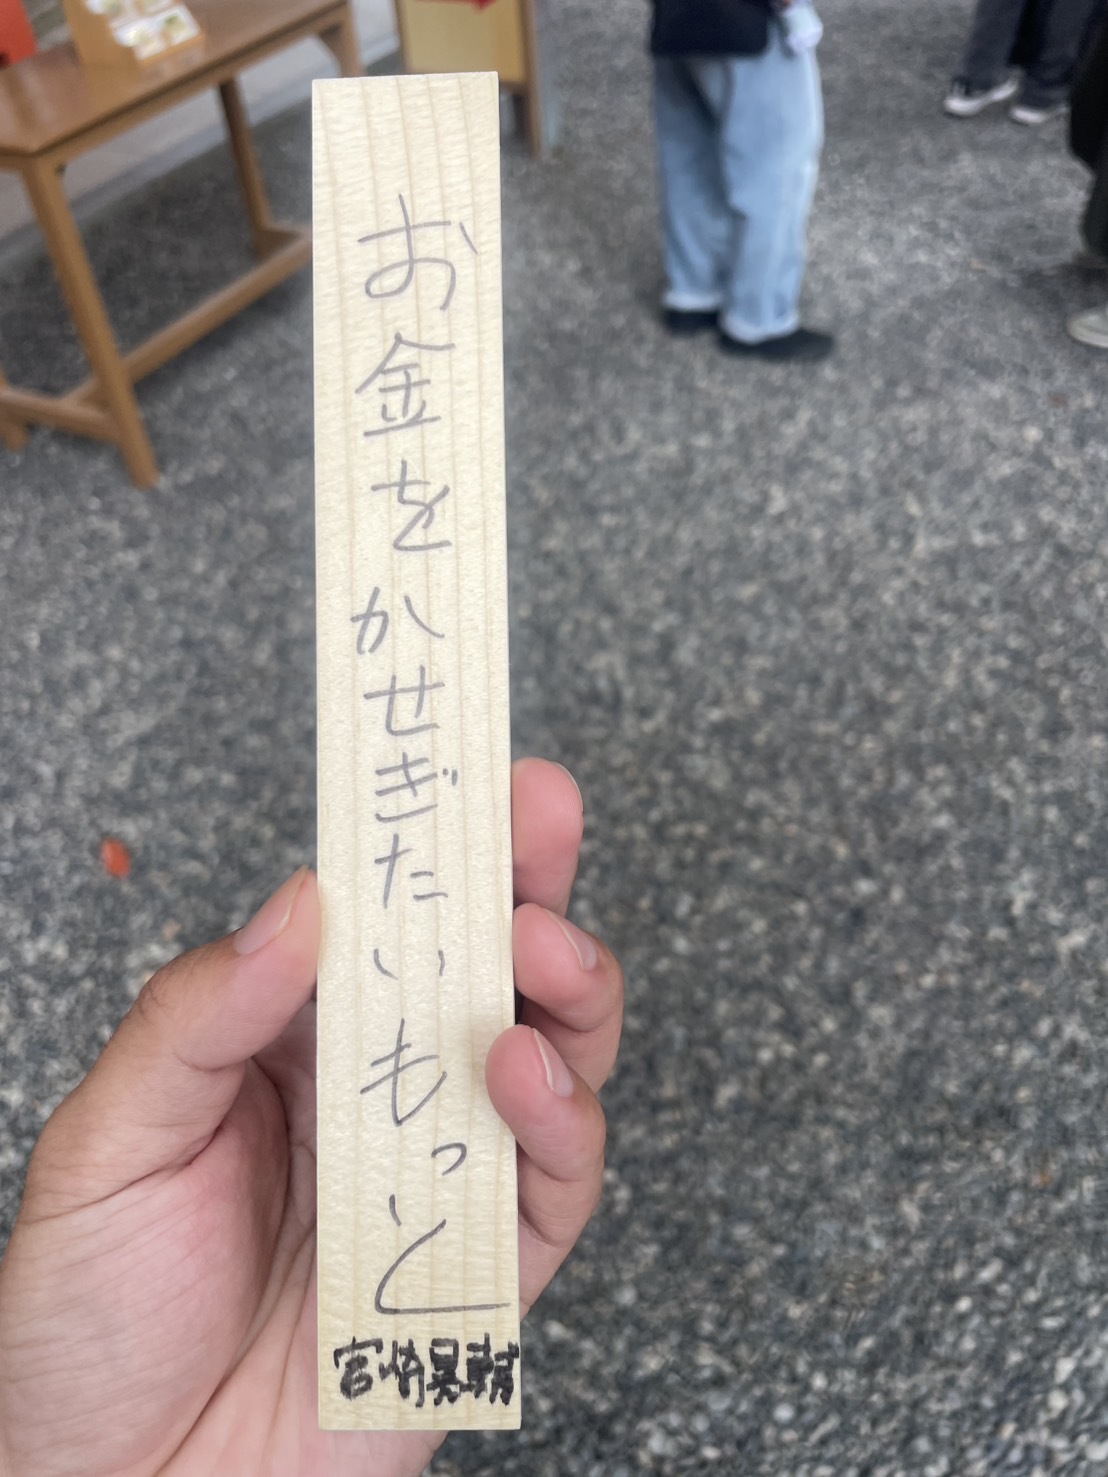 お金をかせぎたいもっと
宮崎晃輔